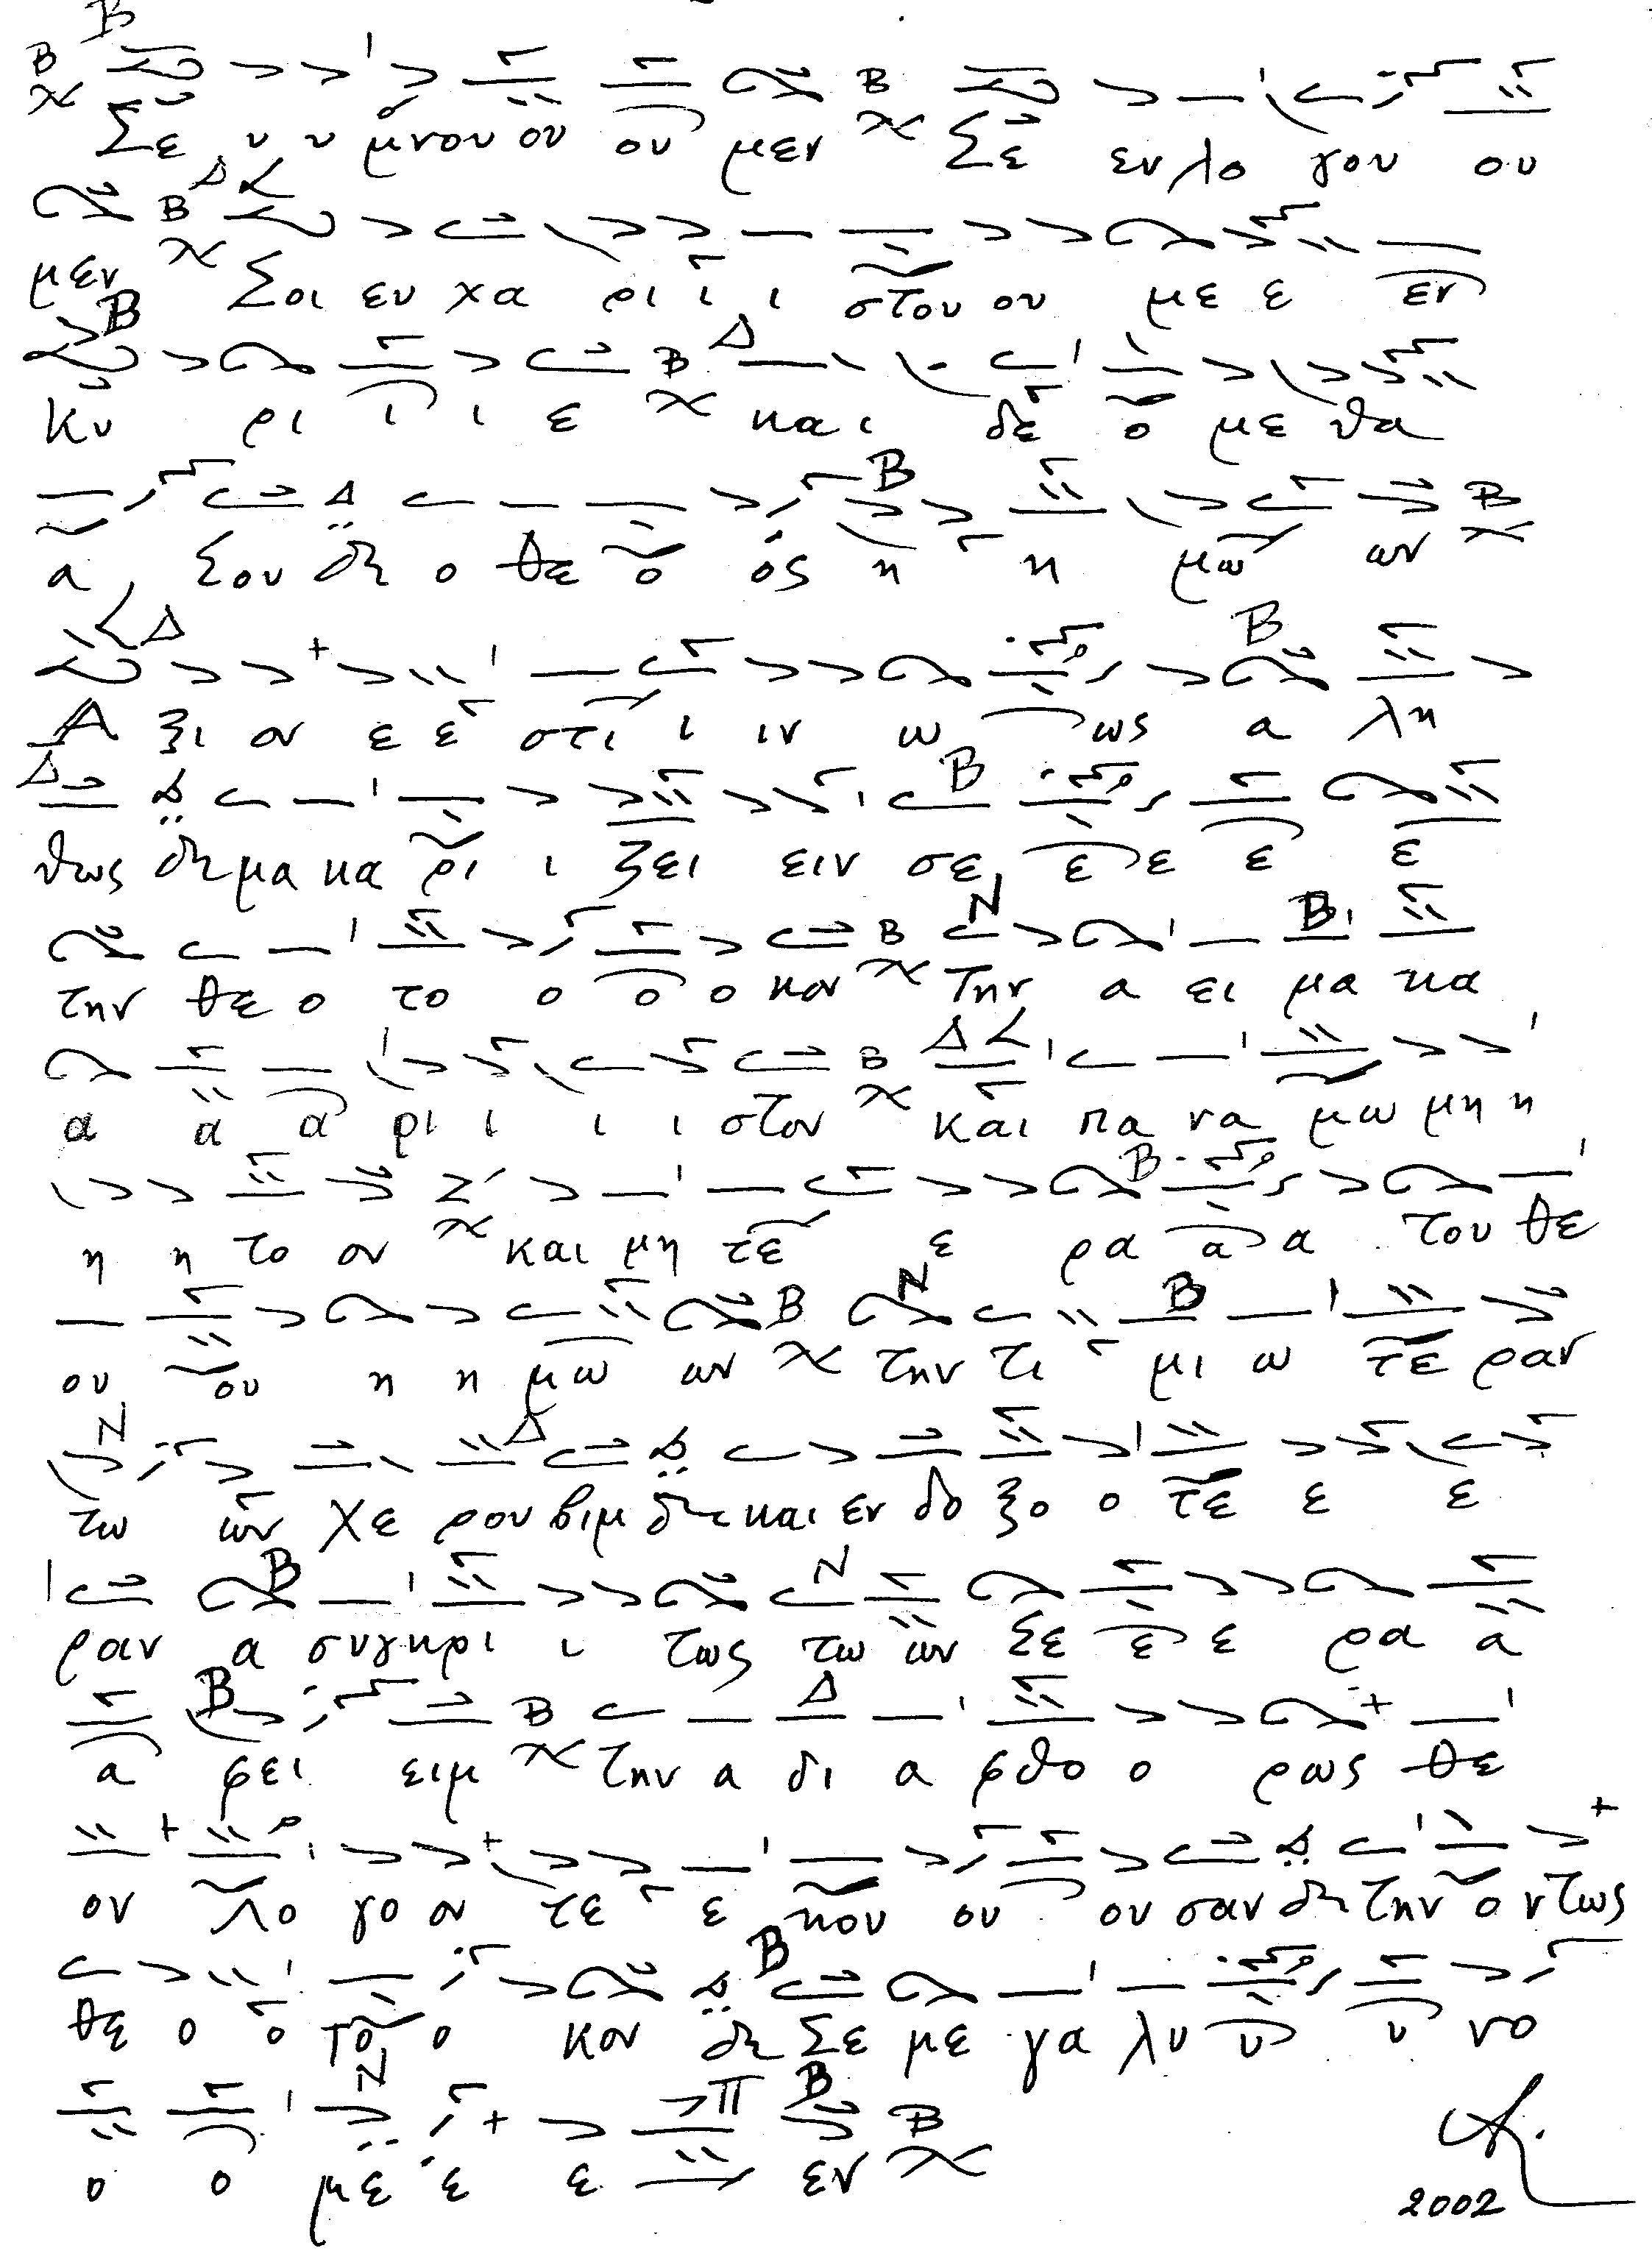 Σε υ υ μνου ου ου μεν Σε ευλο γου ου
μεν Σοι ευ χα ρι ι ι στου ου με ε εν
Κυ ρι ι ι ε και δε ο με θα
α Σου ο θε ο ος η η μω ων
Α ξι ον ε ε στι ι ιν ω ως α λη
θως μα κα ρι ι ζει ειν σε ε ε ε ε
την θε ο το ο ο ο κον Την α ει μα κα
α α α ρι ι ι ι στον και πα να μω μη η
η η το ον και μη τε ε ρα α α του θε
ου ου η η μω ων την τι μι ω τε ραν
τω ων χε ρου βιμ και εν δο ξο ο τε ε ε
ραν α συγκρι ι τως τω ων Σε ε ε ρα α
α φει ειμ την α δι α φθο ο ρως θε
ον λο γο ον τε ε κου ου ου σαν την ο ντως
θε ο ο το ο κον Σε με γα λυ υ υ νο
ο ο με ε ε εν
2002